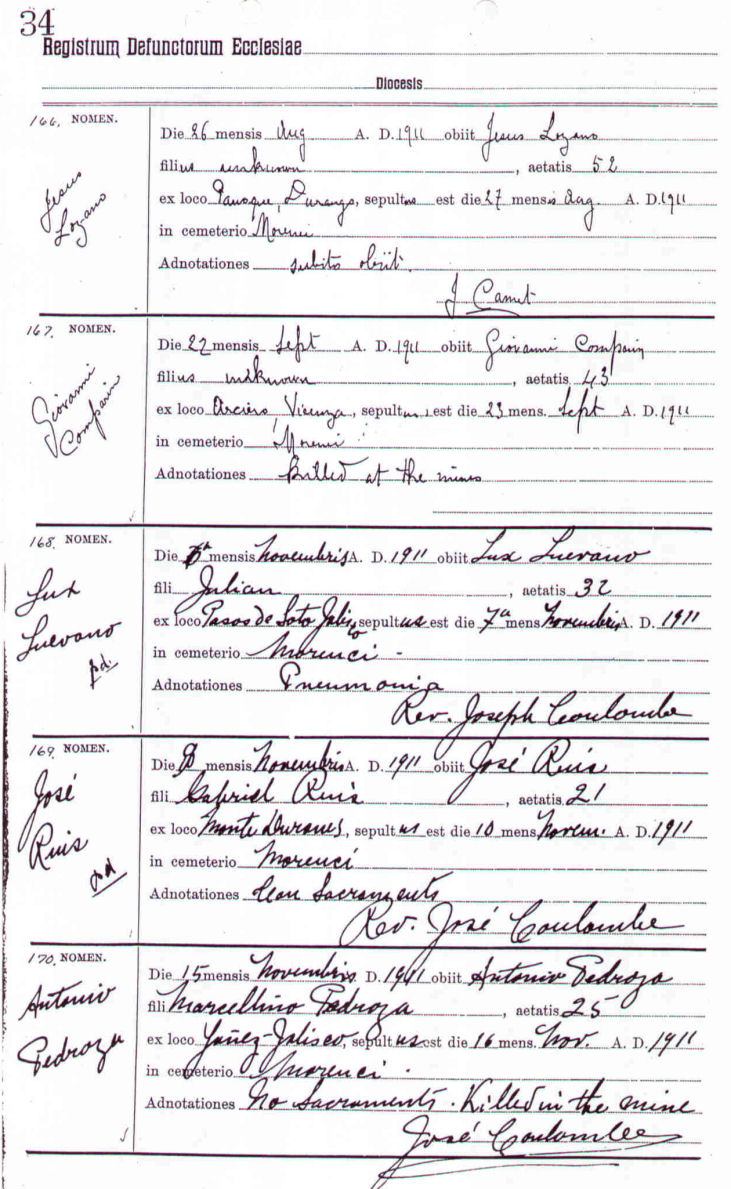 34
Registrum Defunctorum Ecclesiae
Diocesis
166. NOMEN.
Jesus
Lozano
Die 26 mensis Aug A. D. 1911 obiit Jesus Lozano
filius unknown, aetatis 52
ex loco Durango, sepultus est die 27 mensis Aug. A. D. 1911
in cemeterio Morenci
Adnotationes subito obiit.
J Camet
167. NOMEN.
Giovanni
Comparin
Die 22 mensis Sept A. D. 1911 obiit Giovanni Comparin
filius unknown, aetatis 43
ex loco Arciero, Vicenza, sepultus est die 23 mens. Sept A. D. 1911
in cemeterio Morenci
Adnotationes Killed at the mines
168. NOMEN.
Lux
Luevano
pd.
Die mensis Novembris A. D. 1911 obiit Lux Luevano
fili Julian, aetatis 32
ex loco Pasos de Soto Jalisco, sepultus est die 7a mens Novembris A. D. 1911
in cemeterio Morenci -
Adnotationes Pneumonia
Rev. Joseph Coulombe
169. NOMEN.
José
Ruis
pd
Die mensis Novembris A. D. 1911 obiit José Ruis
fili Gabriel Ruis, aetatis 21
ex loco Monte, sepultus est die 10 mens. Novem. A. D. 1911
in cemeterio Morenci
Adnotationes Sacraments
Rev. José Coulombe
170. NOMEN.
Antonio
Pedroza
Die 15 mensis Novembris D. 1911 obiit Antonio Pedroza
fili Marcellino Pedroza, aetatis 25
ex loco Yañez-Jalisco, sepultus est die 16 mens. Nov. A. D. 1911
in cemeterio Morenci.
Adnotationes No Sacraments. Killed in the mine
José Coulombe